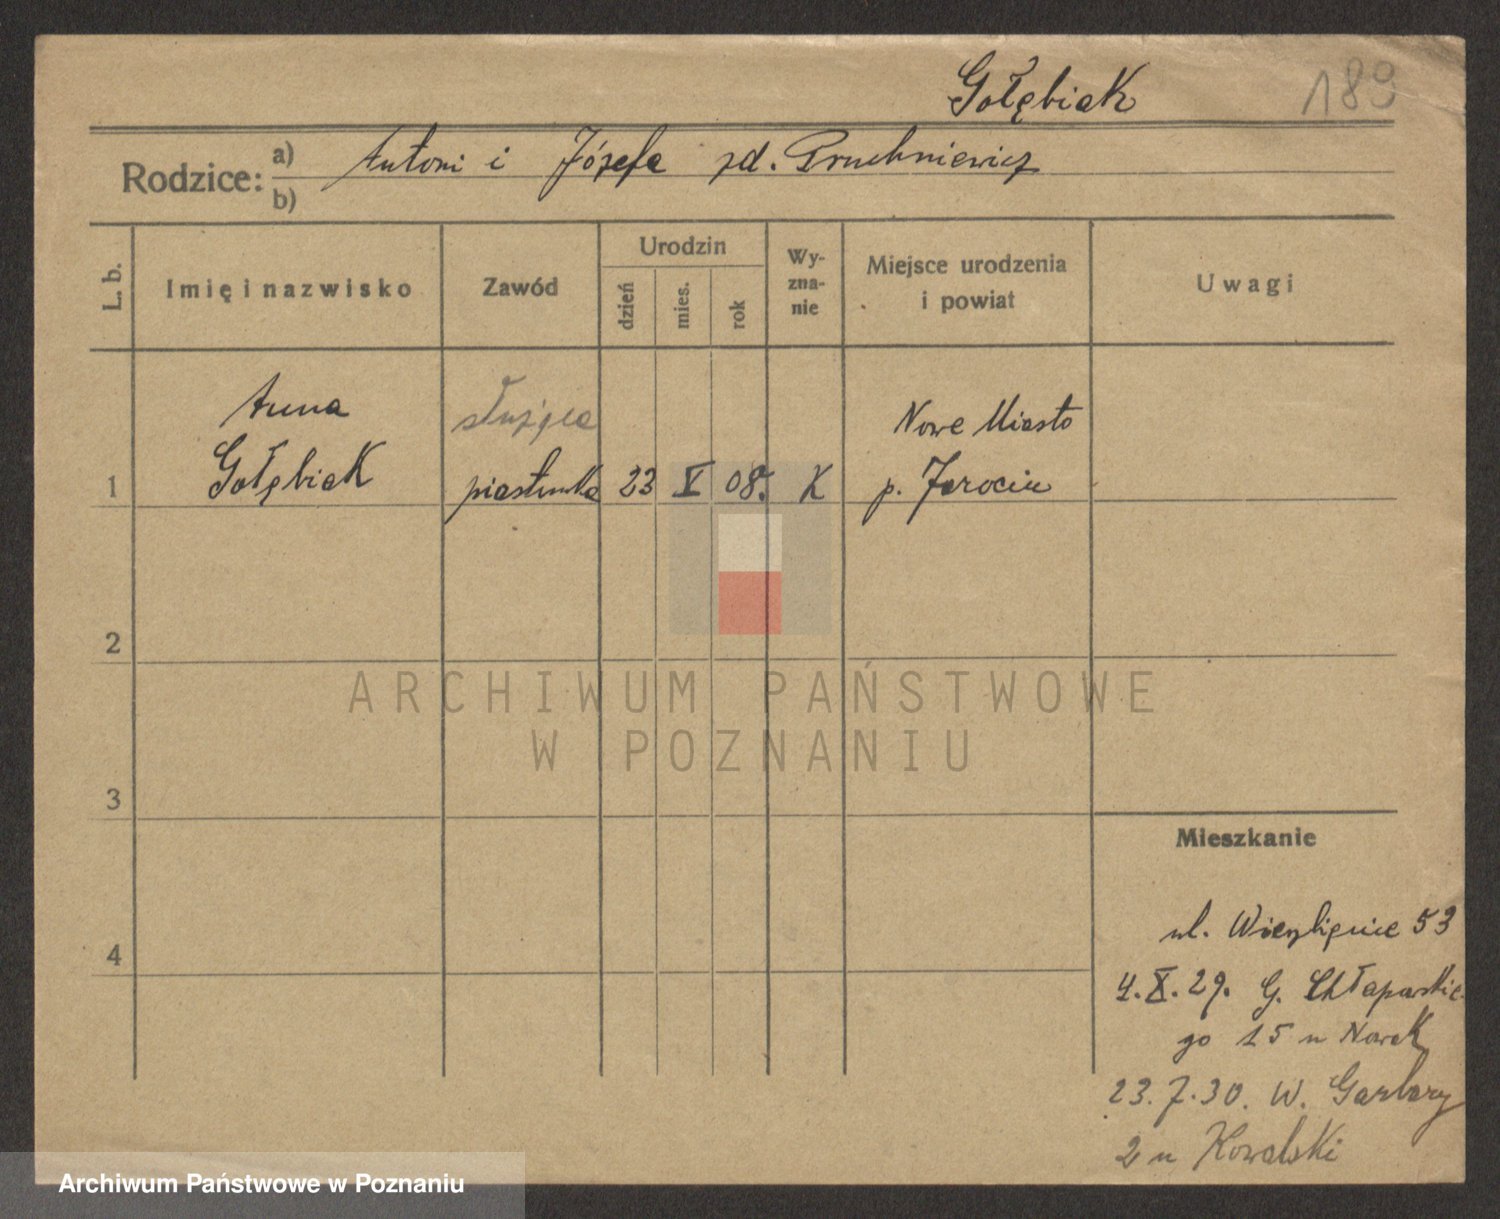 Gołębiak 189
Rodzice: a) Antoni i Józefa zd. Pruchniewicz
b)
L. b. Imię i nazwisko Zawód Urodzin dzień mies. rok Wy-zna-nie Miejsce urodzenia i powiat Uwagi
Anna służąca Nowe Miasto
1 Gołębiak piastunka 23 X 08. K p. Jarocin
2
ARCHIWUM PAŃSTWOWE
W POZNANIU
3
Mieszkanie
ul. 53
4
4.X.29. G. Chłapowskie-
go 15 u Nowak
23.7.30. W. Garbary
2 u Kowalski
Archiwum Państwowe w Poznaniu